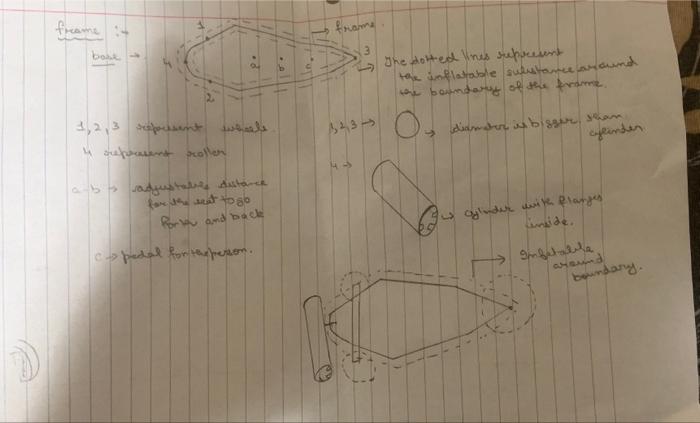 frame :→
base →
1
4
2
3
a
b
c
→ frame.
The dotted lines represent
the inflatable substance around
the boundary of the frame.
1, 2, 3 represent wheels.
4 represent roller
a-b → adjustable distance
for the seat to go
forth and back
c → pedal for the person.
1, 2, 3 →
diameter is bigger than
cylinder
4 →
cylinder with flanges
inside.
Inflatable
around
boundary.